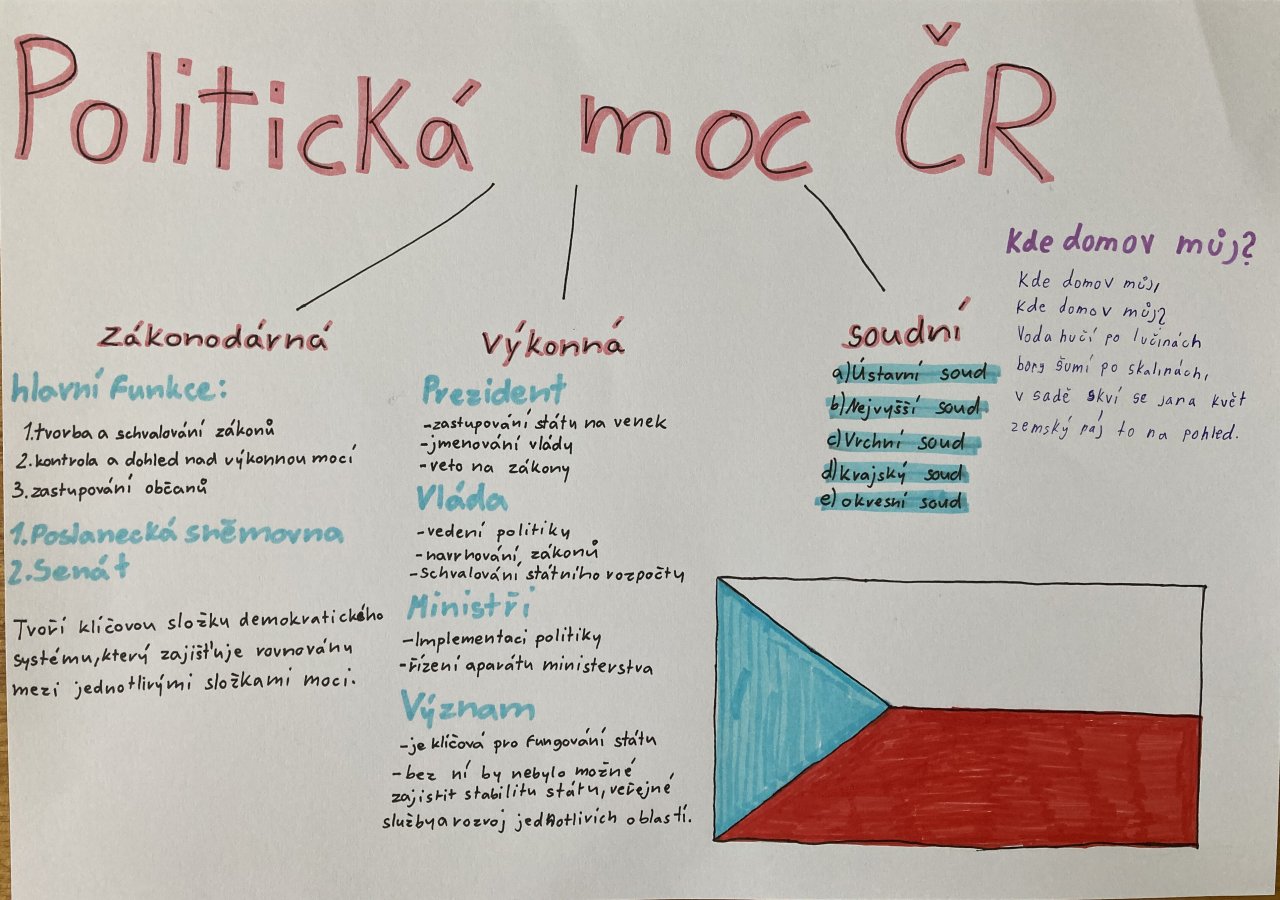 Politická moc ČR
zákonodárná
hlavní funkce:
1.tvorba a schvalování zákonů
2.kontrola a dohled nad výkonnou mocí
3.zastupování občanů
1.Poslanecká sněmovna
2.Senát
Tvoří klíčovou složku demokratického
systému,který zajišťuje rovnováhu
mezi jednotlivými složkami moci.
výkonná
Prezident
-zastupování státu na venek
-jmenování vlády
-veto na zákony
Vláda
-vedení politiky
-navrhování zákonů
-Schvalování státního rozpočty
Ministři
-Implementaci politiky
-řízení aparátu ministerstva
Význam
-je klíčová pro fungování státu
-bez ní by nebylo možné
zajistit stabilitu státu,veřejné
služby a rozvoj jednotlivích oblastí.
soudní
a)Ústavní soud
b)Nejvyšší soud
c)Vrchní soud
d)krajský soud
e)okresní soud
Kde domov můj?
Kde domov můj,
Kde domov můj?
Voda hučí po lučinách
bory šumí po skalinách,
v sadě skví se jara květ
zemský ráj to na pohled.